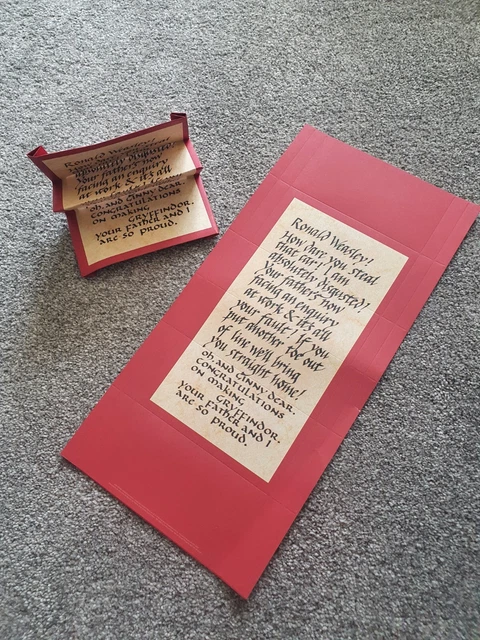 Ronald Weasley!
absolutely disgusted!
Your father's now
facing an enquiry
at work & it's all
oh, and Ginny dear,
Congratulations
on making
Gryffindor.
Your father and I
are so proud.
Ronald Weasley!
How dare you steal
that car! I am
absolutely disgusted!
Your father's now
facing an enquiry
at work & it's all
your fault! If you
put another toe out
of line we'll bring
you straight home!
oh, and Ginny dear,
Congratulations
on making
Gryffindor.
Your father and I
are so proud.